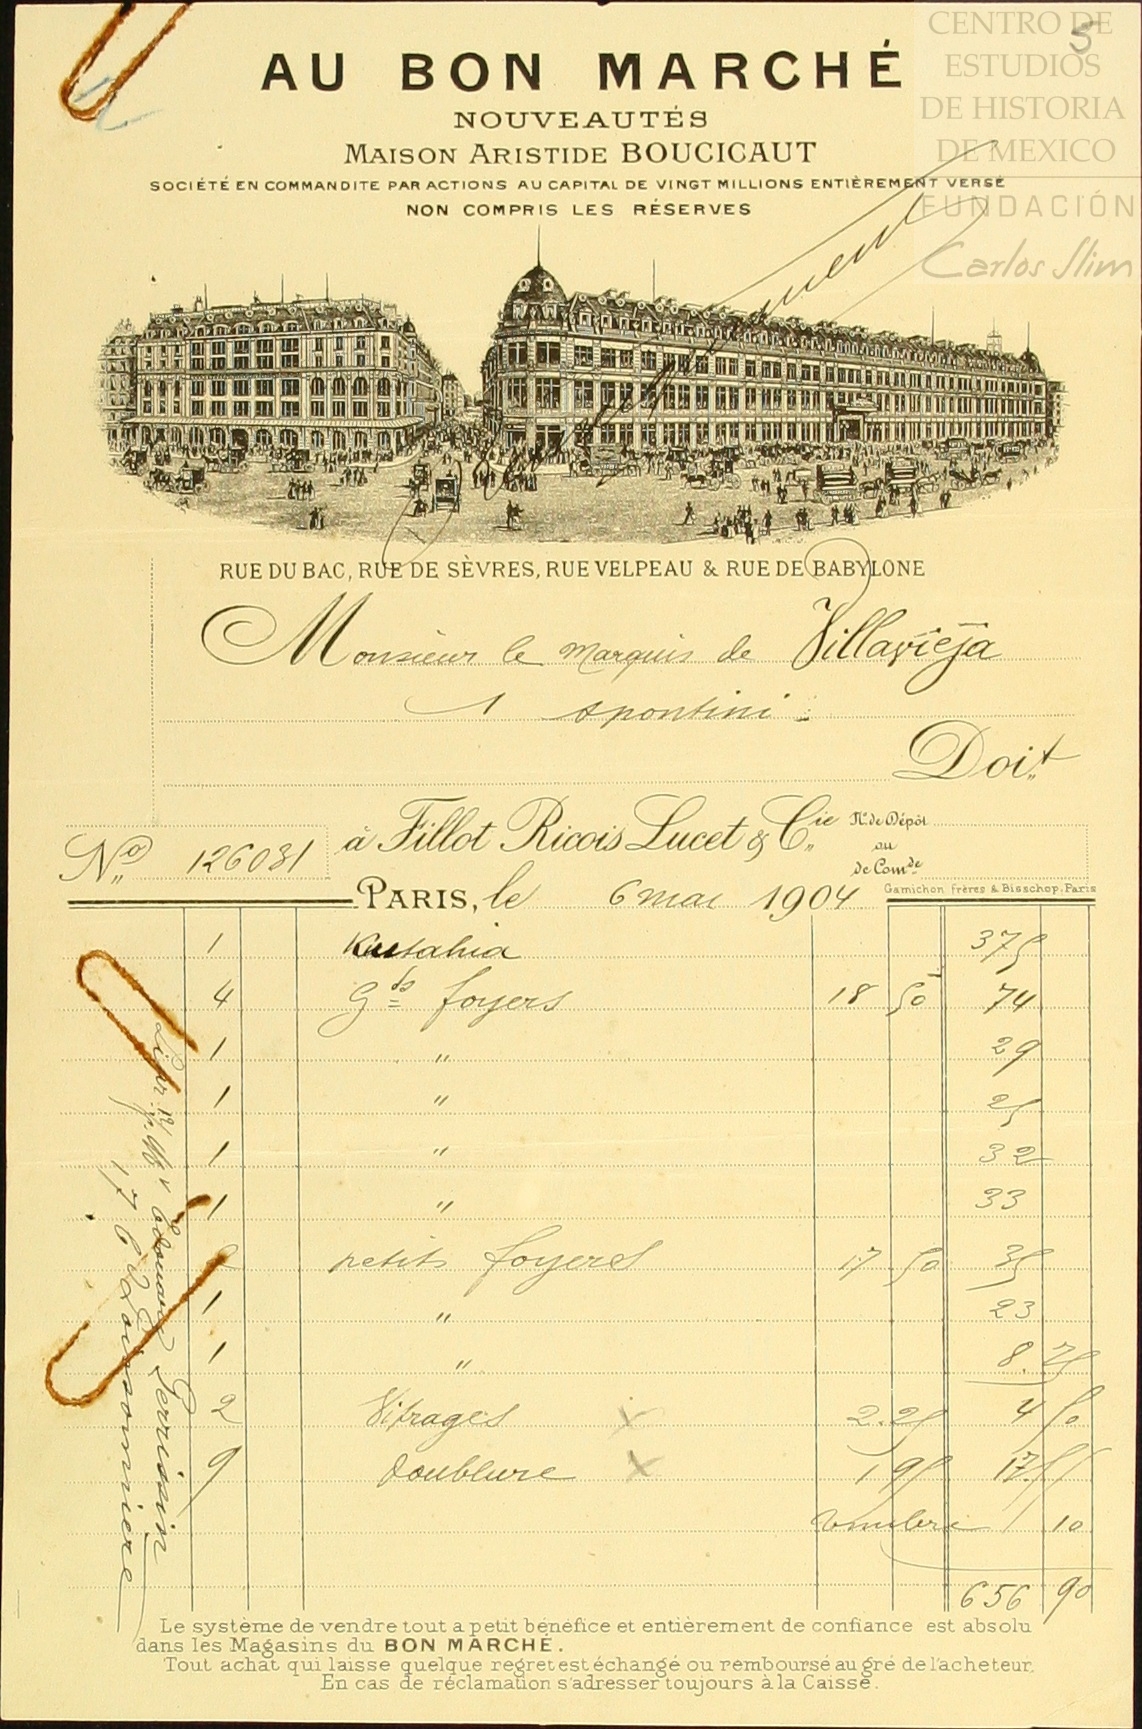 CENTRO DE
ESTUDIOS
DE HISTORIA
DE MEXICO
FUNDACIÓN
Carlos Slim
5
AU BON MARCHÉ
NOUVEAUTÉS
MAISON ARISTIDE BOUCICAUT
SOCIÉTÉ EN COMMANDITE PAR ACTIONS AU CAPITAL DE VINGT MILLIONS ENTIÈREMENT VERSÉ
NON COMPRIS LES RÉSERVES
RUE DU BAC, RUE DE SÈVRES, RUE VELPEAU & RUE DE BABYLONE
Monsieur le marquis de Villavieja
1 spontini
Doit
à Fillot Ricois Lucet & Cie
No de Dépôt
ou
de Comde
No 126031
Gamichon frères & Bisschop, Paris
PARIS, le 6 mai 1904
1 Kutahia 375
4 Gds foyers 18 50 74
1 " 29
1 " 25
1 " 32
1 " 33
petits foyers 17 50 35
1 " 23
1 " 8.75
2 Vitrages 2.25 4 50
9 doublure 1 95 17.55
10
656 90
Le système de vendre tout a petit bénéfice et entièrement de confiance est absolu
dans les Magasins du BON MARCHÉ.
Tout achat qui laisse quelque regret est échangé ou remboursé au gré de l'acheteur.
En cas de réclamation s'adresser toujours à la Caisse.